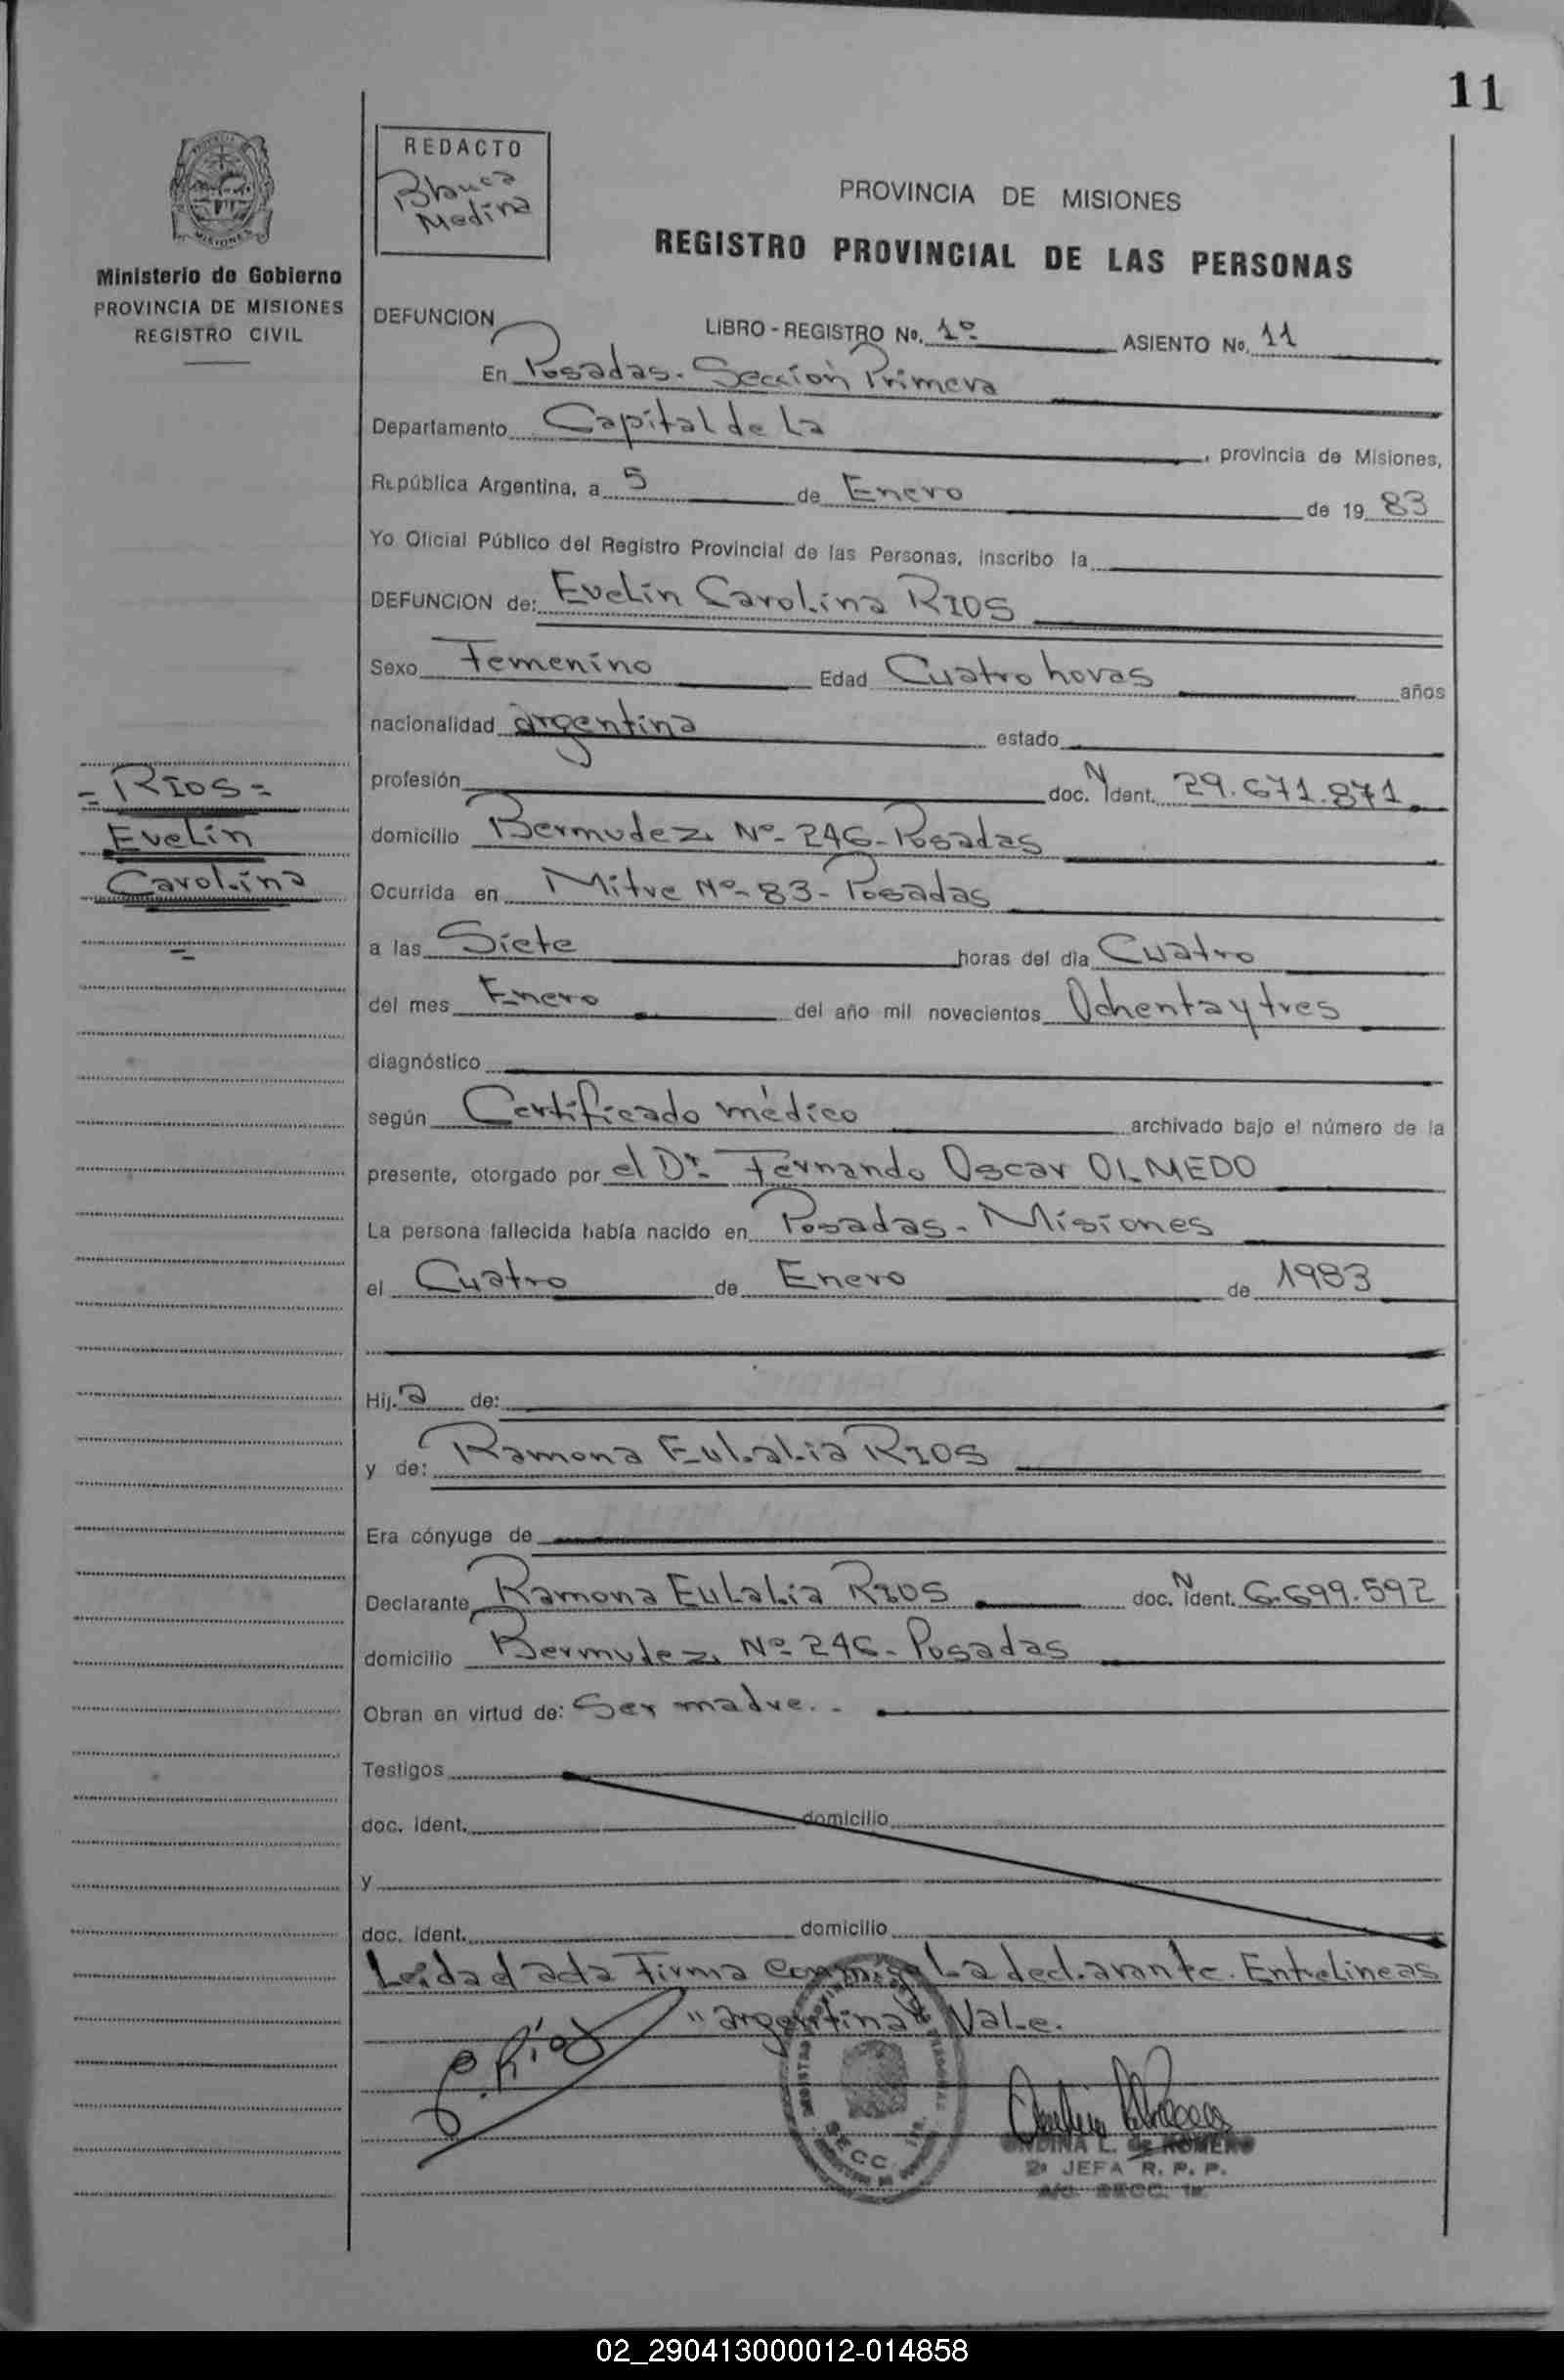 11
REDACTO
Blanca
Medina
PROVINCIA DE MISIONES
REGISTRO PROVINCIAL DE LAS PERSONAS
Ministerio de Gobierno
PROVINCIA DE MISIONES
REGISTRO CIVIL
DEFUNCION LIBRO - REGISTRO No. 1º ASIENTO No. 11
En Posadas. Sección Primera
Departamento Capital de La , provincia de Misiones,
República Argentina, a 5 de Enero de 19 83
Yo Oficial Público del Registro Provincial de las Personas, inscribo la
DEFUNCION de: Evelin Carolina RIOS
Sexo Femenino Edad Cuatro horas años
nacionalidad argentina estado
profesión doc. N Ident. 29.671.871
domicilio Bermudez Nº- 246- Posadas
Ocurrida en Mitre Nº- 83- Posadas
a las Siete horas del día Cuatro
del mes Enero del año mil novecientos Ochenta y tres
diagnóstico
según Certificado médico archivado bajo el número de la
presente, otorgado por el Dr. Fernando Oscar OLMEDO
La persona fallecida había nacido en Posadas- Misiones
el Cuatro de Enero de 1983
Hij.a de:
y de: Ramona Eulalia RIOS
Era cónyuge de
Declarante Ramona Eulalia RIOS doc. N ident. 6.699.592
domicilio Bermudez Nº- 246- Posadas
Obran en virtud de: Ser madre. -
Testigos
doc. ident. domicilio
y
doc. ident. domicilio
Leida el acta Firma conmigo La declarante. Entrelineas
"argentina" Vale.
= RIOS =
Evelin
Carolina
=
Rios
SECC. 1ª
ONDINA L. de ROMERO
2ª JEFA R. P. P.
A/C. SECC. 1ª
02_290413000012-014858